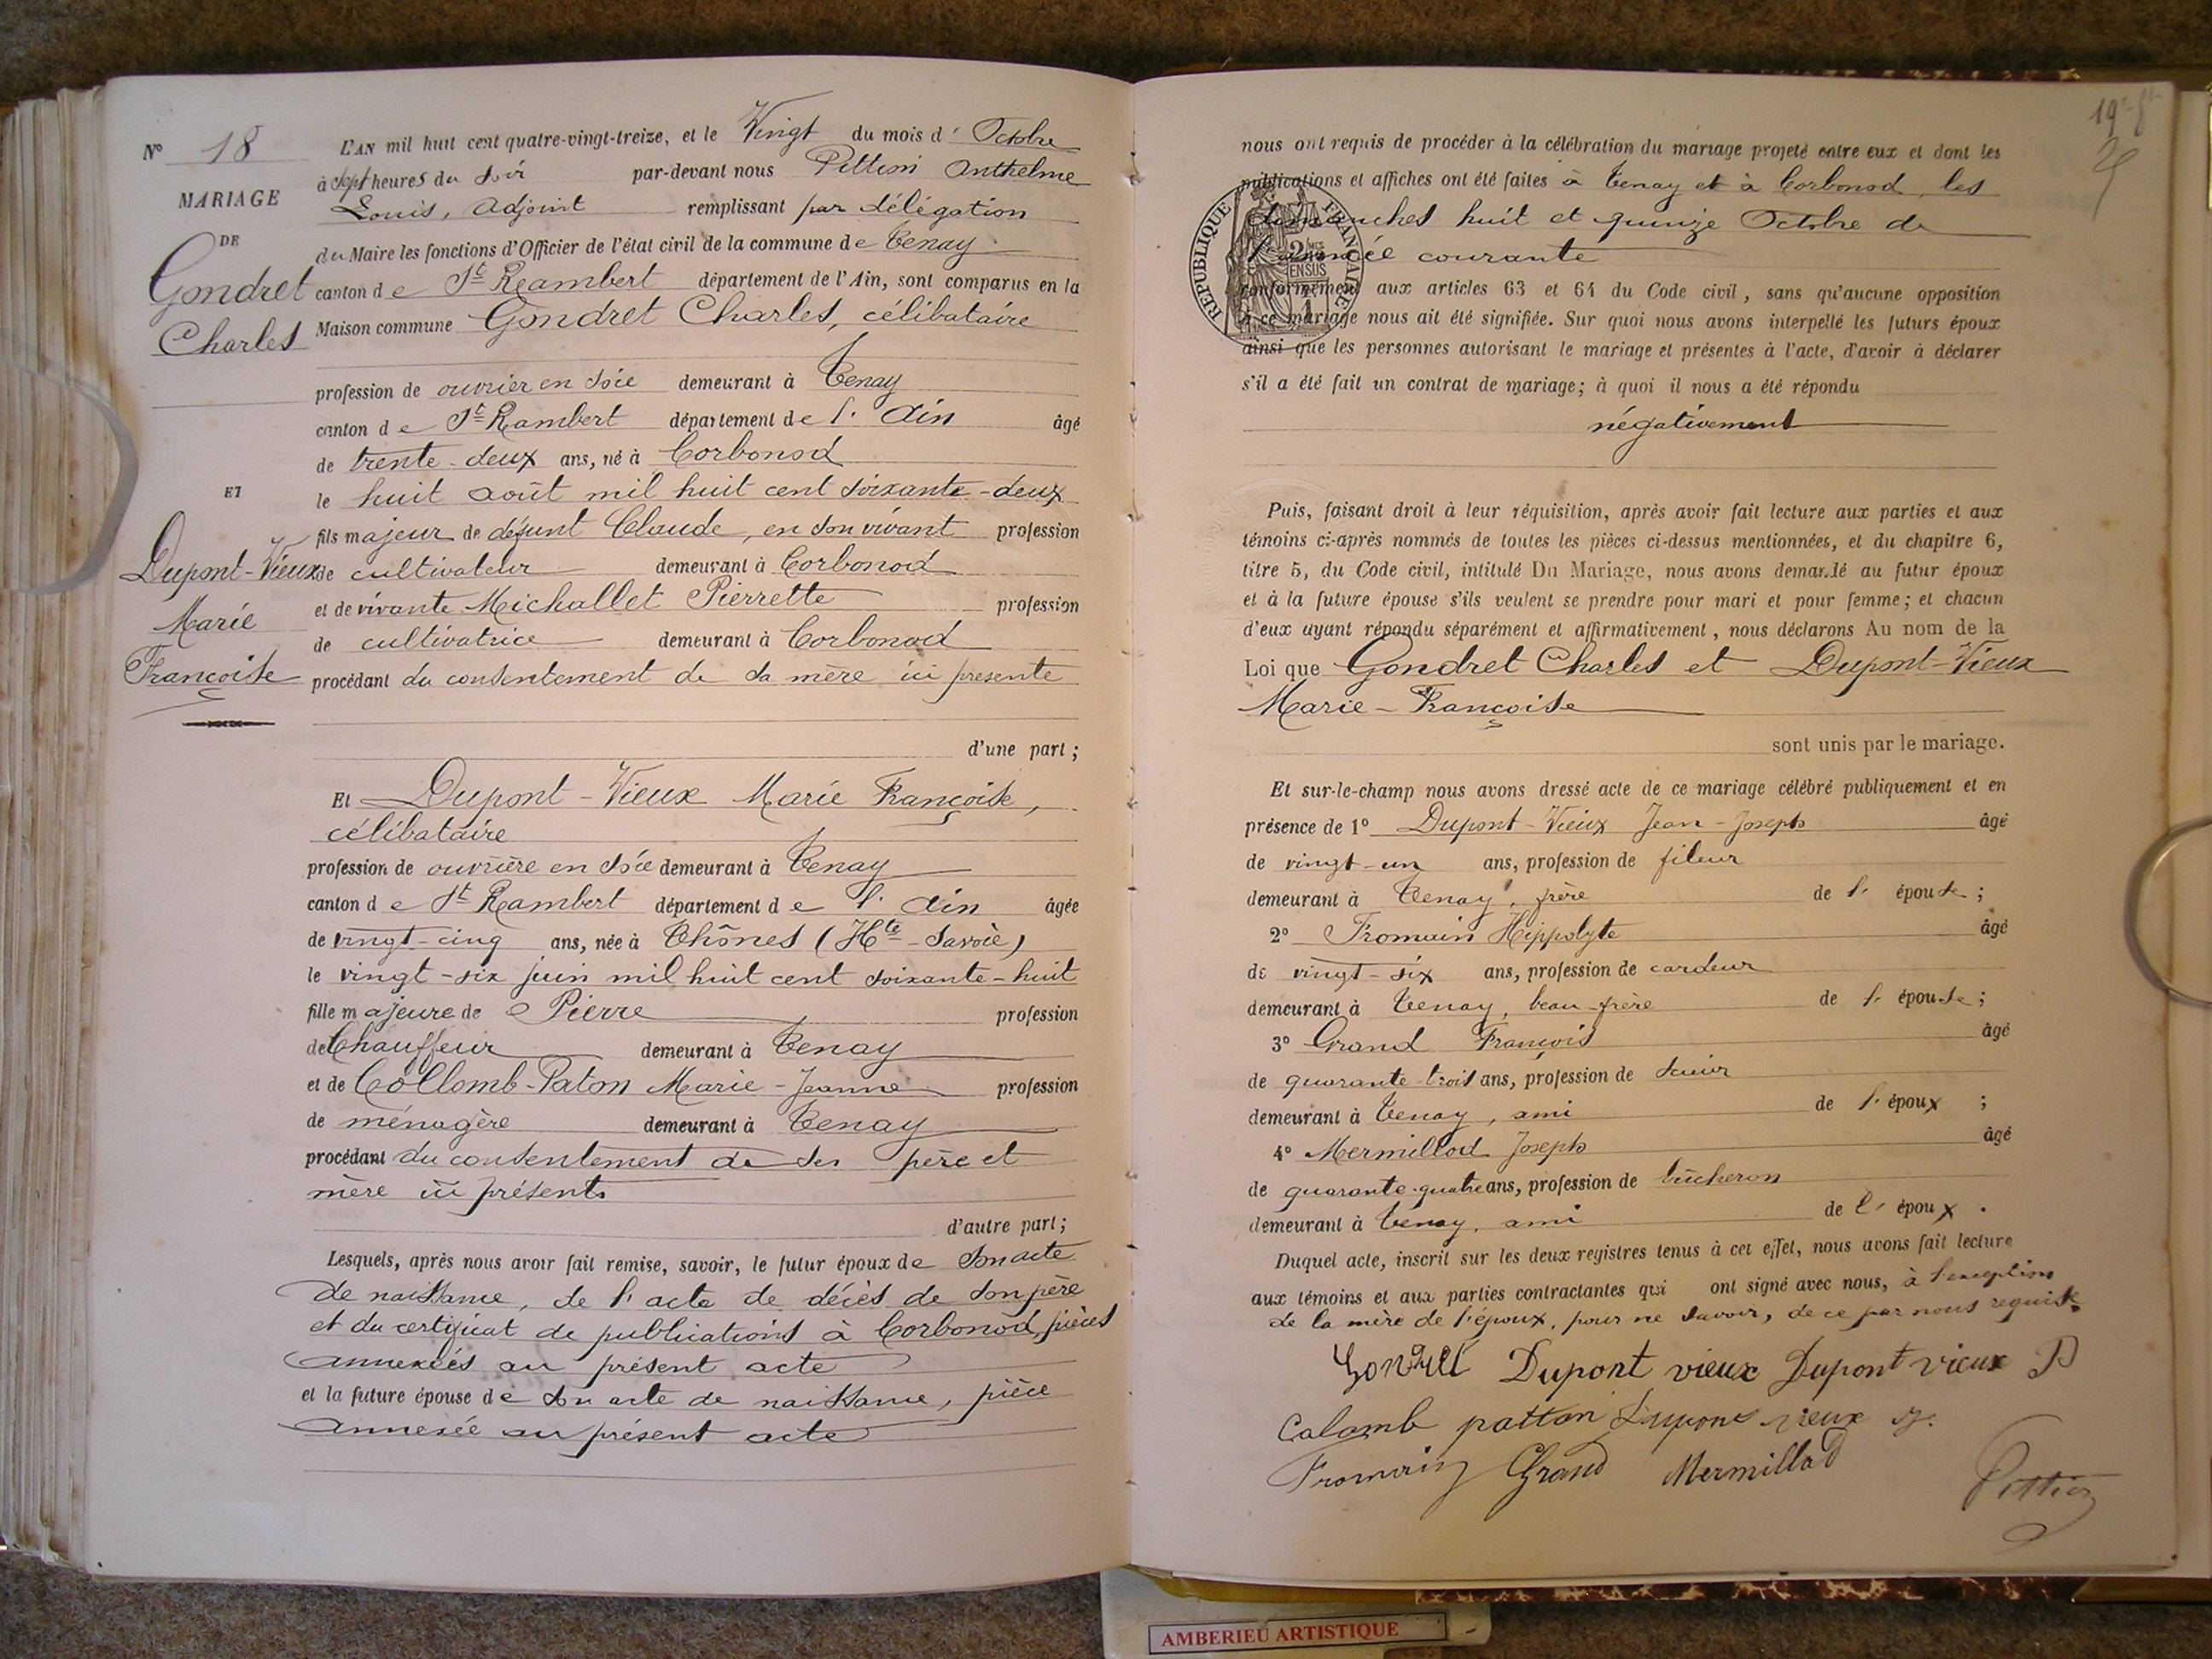 N° 18
MARIAGE
DE
Gondret
Charles
ET
Dupont-Vieux
Marie
Françoise
L'AN mil huit cent quatre-vingt-treize, et le Vingt du mois d' Octobre
à sept heures du soir par-devant nous Pittion Anthelme
Louis, Adjoint remplissant par délégation
du Maire les fonctions d'Officier de l'état civil de la commune de Tenay
canton de St Rambert département de l'Ain, sont comparus en la
Maison commune Gondret Charles, célibataire
profession de ouvrier en soie demeurant à Tenay
canton de St Rambert département de l'Ain âgé
de trente-deux ans, né à Corbonod
le huit août mil huit cent soixante-deux
fils majeur de défunt Claude, en son vivant profession
de cultivateur demeurant à Corbonod
et de vivante Michallet Pierrette profession
de cultivatrice demeurant à Corbonod
procédant du consentement de sa mère ici présente
d'une part;
Et Dupont-Vieux Marie Françoise,
célibataire
profession de ouvrière en soie demeurant à Tenay
canton de St Rambert département de l'Ain âgée
de vingt-cinq ans, née à Thônes (Hte-Savoie)
le vingt-six juin mil huit cent soixante-huit
fille majeure de Pierre profession
de Chauffeur demeurant à Tenay
et de Collomb-Paton Marie-Jeanne profession
de ménagère demeurant à Tenay
procédant du consentement de ses père et
mère ici présents
d'autre part;
Lesquels, après nous avoir fait remise, savoir, le futur époux de son acte
de naissance, de l'acte de décès de son père
et du certificat de publications à Corbonod, pièces
annexées au présent acte
et la future épouse de son acte de naissance, pièce
annexée au présent acte
nous ont requis de procéder à la célébration du mariage projeté entre eux et dont les
publications et affiches ont été faites à Tenay et à Corbonod, les
dimanches huit et quinze Octobre de
l'année courante
conformément aux articles 63 et 64 du Code civil, sans qu'aucune opposition
à ce mariage nous ait été signifiée. Sur quoi nous avons interpellé les futurs époux
ainsi que les personnes autorisant le mariage et présentes à l'acte, d'avoir à déclarer
s'il a été fait un contrat de mariage; à quoi il nous a été répondu
négativement
REPUBLIQUE FRANÇAISE
Puis, faisant droit à leur réquisition, après avoir fait lecture aux parties et aux
témoins ci-après nommés de toutes les pièces ci-dessus mentionnées, et du chapitre 6,
titre 5, du Code civil, intitulé Du Mariage, nous avons demandé au futur époux
et à la future épouse s'ils veulent se prendre pour mari et pour femme; et chacun
d'eux ayant répondu séparément et affirmativement, nous déclarons Au nom de la
Loi que Gondret Charles et Dupont-Vieux
Marie-Françoise
sont unis par le mariage.
Et sur-le-champ nous avons dressé acte de ce mariage célébré publiquement et en
présence de 1° Dupont-Vieux Jean-Joseph âgé
de vingt-un ans, profession de fileur
demeurant à Tenay, frère de l'épouse;
2° Fromain Hippolyte âgé
de vingt-six ans, profession de cardeur
demeurant à Tenay, beau-frère de l'épouse;
3° Grand François âgé
de quarante-trois ans, profession de scieur
demeurant à Tenay, ami de l'époux;
4° Mermillod Joseph âgé
de quarante-quatre ans, profession de bûcheron
demeurant à Tenay, ami de l'époux.
Duquel acte, inscrit sur les deux registres tenus à cet effet, nous avons fait lecture
aux témoins et aux parties contractantes qui ont signé avec nous, à l'exception
de la mère de l'époux, pour ne savoir, de ce par nous requise.
Gondret Dupont vieux Dupont vieux P
Calomb patton Dupont vieux J.
Fromain Grand Mermillod
Pittion
AMBERIEU ARTISTIQUE